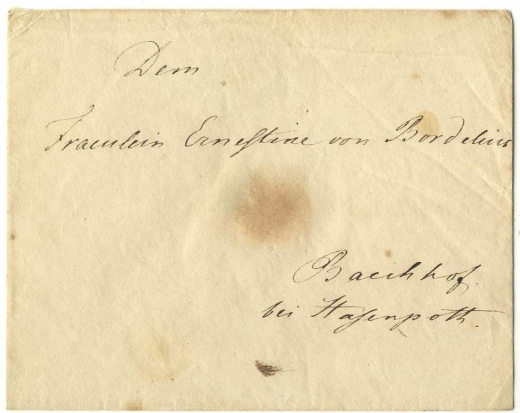 Dem
Fraeulein Ernestine von Bordelius
Baeckhof.
bei Hasenpoth.